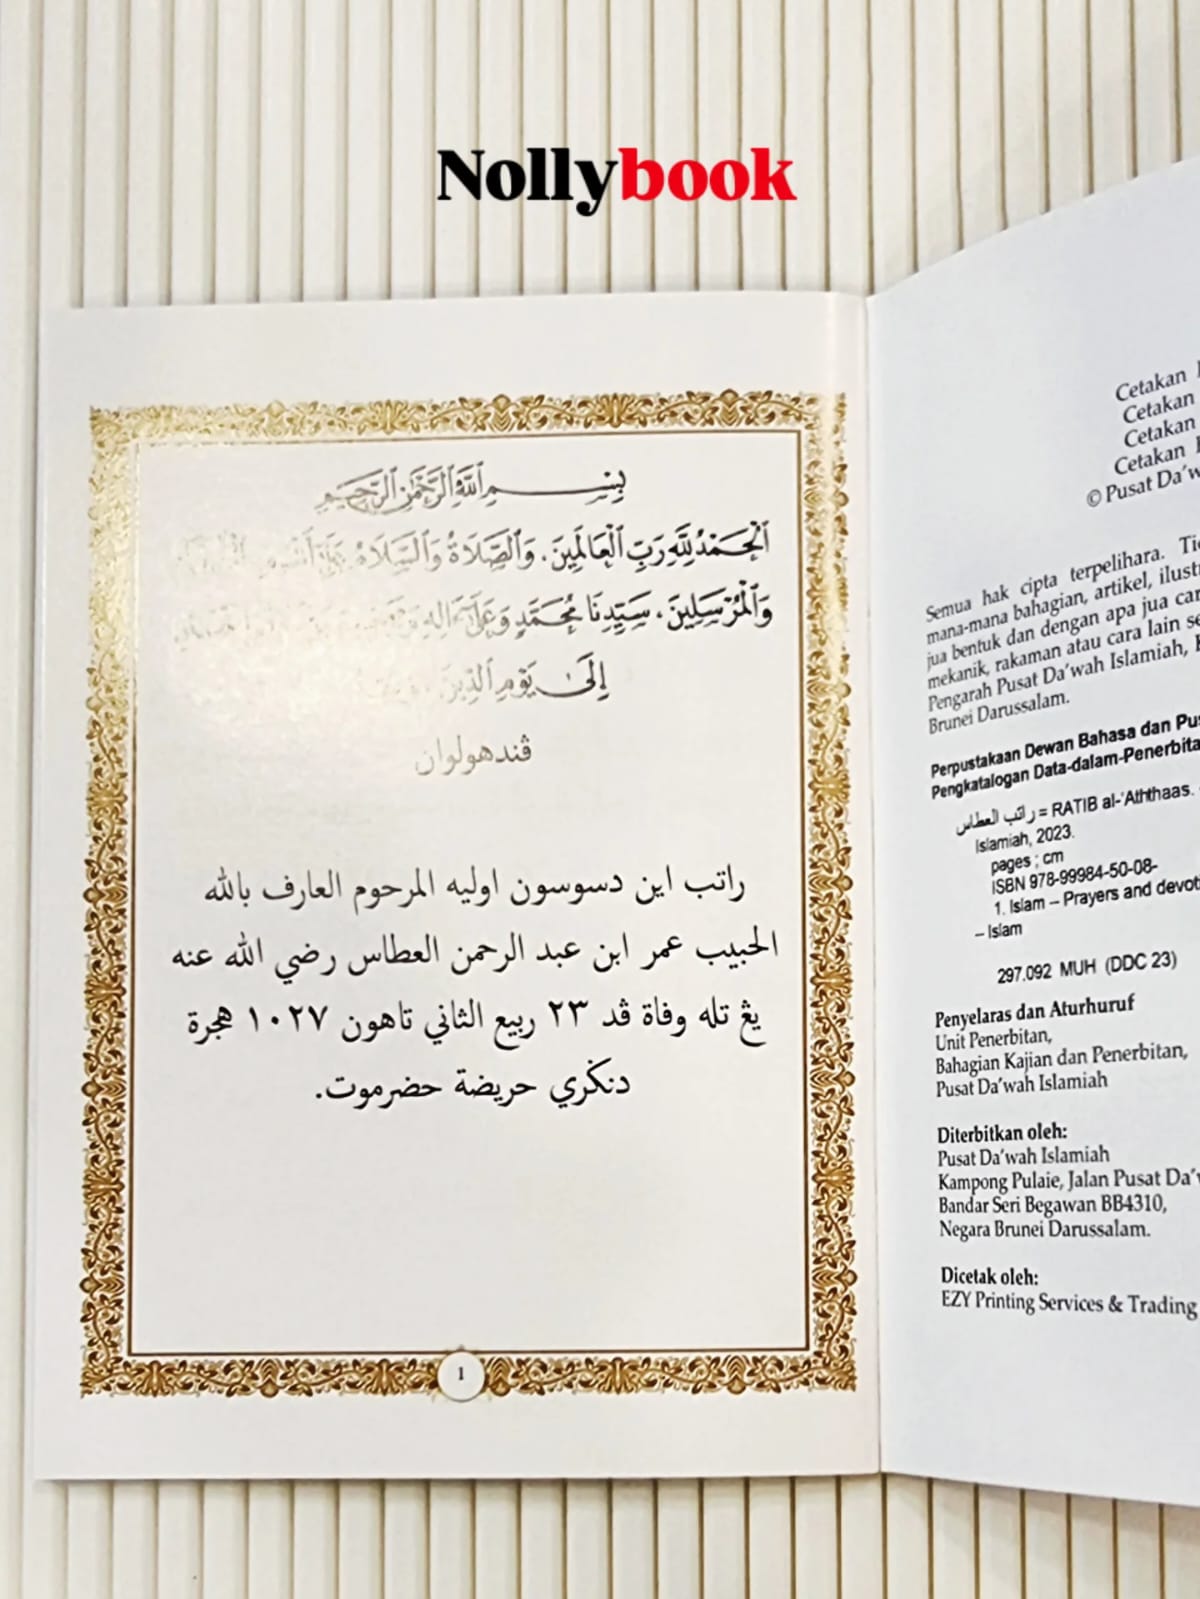 Nollybook
بِسْمِ ٱللَّهِ ٱلرَّحْمَٰنِ ٱلرَّحِيمِ
ٱلْحَمْدُ لِلَّهِ رَبِّ ٱلْعَالَمِينَ. وَٱلصَّلَاةُ وَٱلسَّلَامُ عَلَىٰ
وَٱلْمُرْسَلِينَ، سَيِّدِنَا مُحَمَّدٍ وَعَلَىٰ آلِهِ
إِلَىٰ يَوْمِ ٱلدِّينِ
ڤندهولوان
راتب اين دسوسون اوليه المرحوم العارف بالله
الحبيب عمر ابن عبد الرحمن العطاس رضي الله عنه
يڠ تله وفاة ڤد ٢٣ ربيع الثاني تاهون ١٠٢٧ هجرة
دنݢري حريضة حضرموت.
1
Cetakan
Cetakan
Cetakan
Cetakan
© Pusat Da'w
Semua hak cipta terpelihara.
mana-mana bahagian, artikel,
jua bentuk dan dengan apa jua
mekanik, rakaman atau cara lain
Pengarah Pusat Da'wah Islamiah,
Brunei Darussalam.
Perpustakaan Dewan Bahasa dan
Pengkatalogan Data-dalam-
راتب العطاس = RATIB al-'Aththaas.
Islamiah, 2023.
pages ; cm
ISBN 978-99984-50-08-
1. Islam – Prayers and
– Islam
297.092 MUH (DDC 23)
Penyelaras dan Aturhuruf
Unit Penerbitan,
Bahagian Kajian dan Penerbitan,
Pusat Da'wah Islamiah
Diterbitkan oleh:
Pusat Da'wah Islamiah
Kampong Pulaie, Jalan Pusat
Bandar Seri Begawan BB4310,
Negara Brunei Darussalam.
Dicetak oleh:
EZY Printing Services & Trading